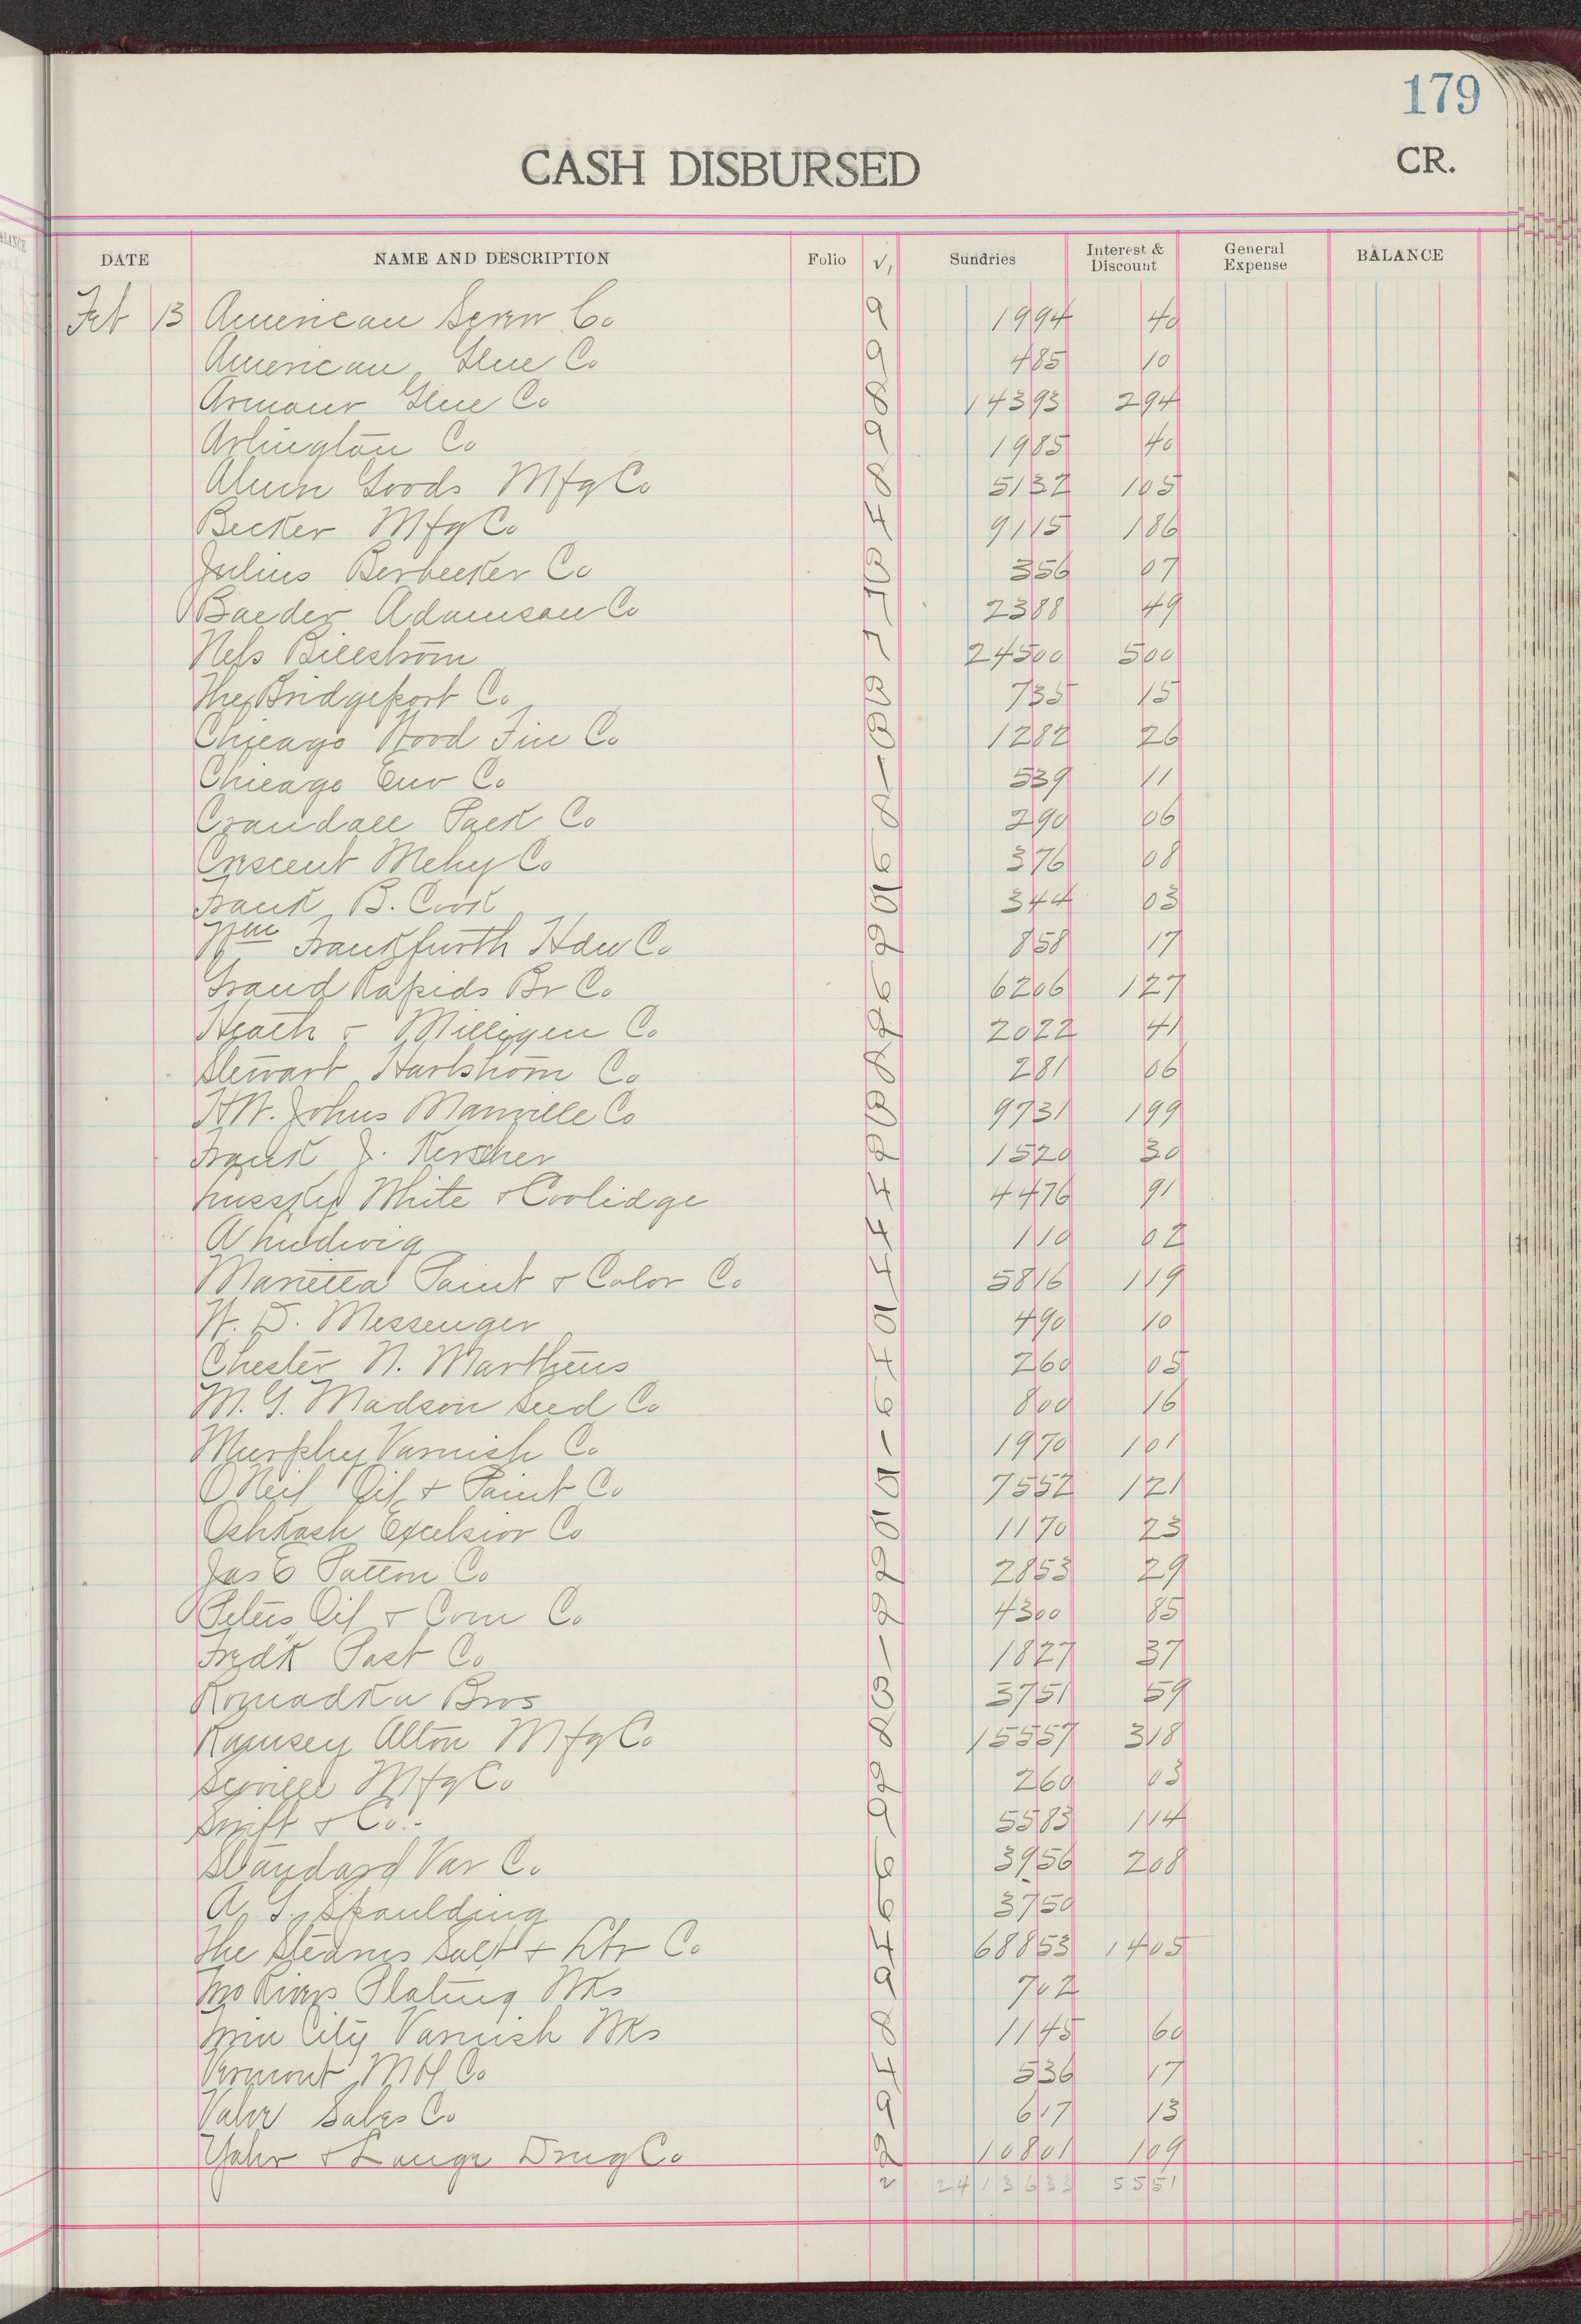 179
CASH DISBURSED CR.
DATE NAME AND DESCRIPTION Folio √, Sundries Interest & Discount General Expense BALANCE
Feb 13 American Screw Co 9 1994 40
American Glue Co 9 485 10
Armour Glue Co 8 14393 294
Arlington Co 9 1985 40
Alum Goods Mfg Co 8 5132 105
Becker Mfg Co 4 9115 186
Julius Berbecker Co 356 07
Baeder Adamson Co 2388 49
Nels Billstrom 24500 500
The Bridgeport Co 735 15
Chicago Wood Fin Co 1282 26
Chicago Env Co 539 11
Crandall Pack Co 8 290 06
Crescent Mchy Co 6 376 08
Frank B. Cook 344 03
Wm Frankfurth Hdw Co 2 858 17
Grand Rapids Br Co 6 6206 127
Heath & Milligen Co 2 2022 41
Stewart Hartshorn Co 8 281 06
H.W. Johns Manville Co 9731 199
Frank J. Kerscher 2 1520 30
Lussky White & Coolidge 4 4476 91
A Ludwig 4 110 02
Marietta Paint & Color Co 4 5816 119
W. D. Messenger 490 10
Chester N. Marthens 4 260 05
M. G. Madson Seed Co 6 800 16
Murphy Varnish Co 1970 101
O Neil Oil & Paint Co 7552 121
Oshkosh Excelsior Co 1170 23
Jas E Patton Co 2 2853 29
Peters Oil & Com Co 2 4300 85
Fredk Post Co 1827 37
Romadka Bros 3751 59
Ramsey Alton Mfg Co 8 15557 318
Scovill Mfg Co 2 260 03
Swift & Co. 9 5583 114
Standard Var Co 6 3956 208
A. G. Spaulding 6 3750
The Stearns Salt & Lbr Co 4 68853 1405
Mo River Plating Wks 9 702
Twin City Varnish Wks 8 1145 60
Vermont M H Co 4 536 17
Valve Sales Co 9 617 13
Yahr & Lange Drug Co 2 10801 109
2413633 5551